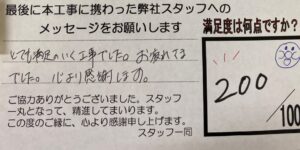 最後に本工事に携わった弊社スタッフへの
メッセージをお願いします
とても満足のいく工事でした。お疲れさま
でした。心より感謝します。
ご協力ありがとうございました。スタッフ
一丸となって、精進してまいります。
この度のご縁に、心より感謝申し上げます。
スタッフ一同
満足度は何点ですか?
200
/100